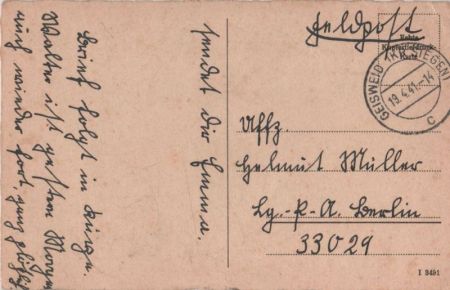 sendet Dir Emma.
Brief folgt in Kürze.
Walter ist gestern Morgen
auch wieder fort, ganz plötzl
Feldpost
Echte
Kupfertiefdruck-
Karte
GEISWEID (KR. SIEGEN)
19.4.41.-14
c
Uffz.
Helmut Müller
Lg.-P.A. Berlin
33029
I 3491